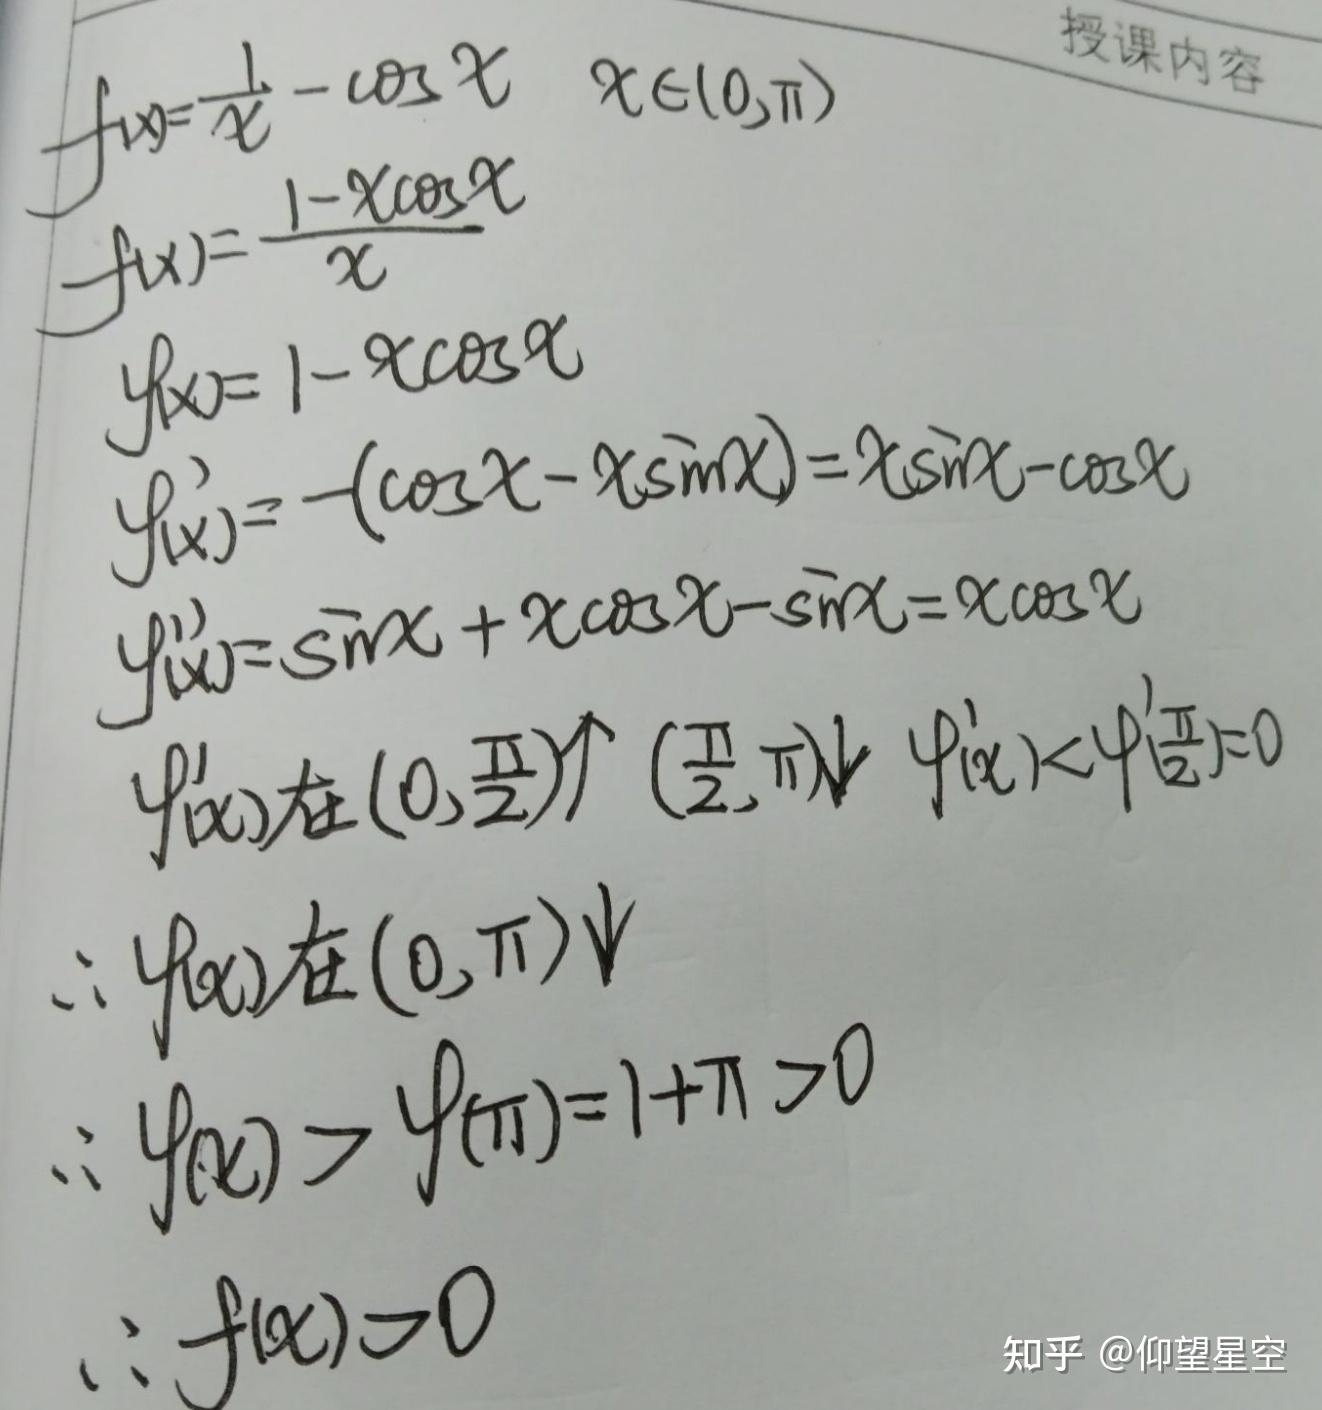 授课内容
f(x)=1/x-cosx x∈(0,π)
f(x)=(1-xcosx)/x
φ(x)=1-xcosx
φ'(x)=-(cosx-xsinx)=xsinx-cosx
φ''(x)=sinx+xcosx-sinx=xcosx
φ'(x)在(0,π/2)↑ (π/2,π)↓ φ'(x)<φ'(π/2)=0
∴φ(x)在(0,π)↓
∴φ(x)>φ(π)=1+π>0
∴f(x)>0
知乎 @仰望星空